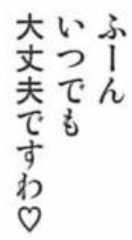 ふーん
いつでも
大丈夫ですわ♡